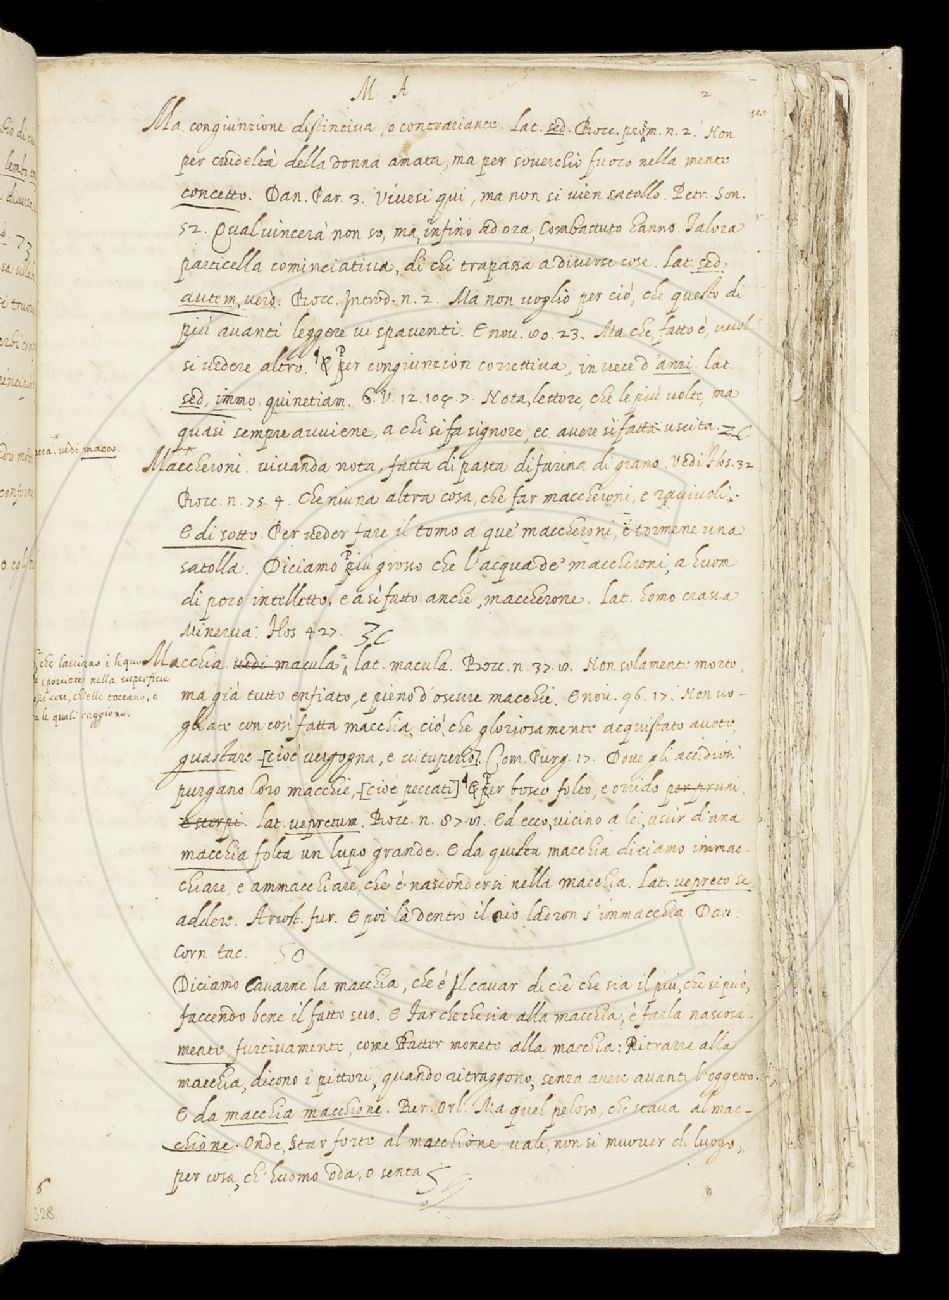 M A
2
Ma. congiunzione distintiva, o contrariante. Lat. sed. Bocc. proem. n. 2. Non
per crudeltà della donna amata, ma per soverchio fuoco nella mente
concetto. Dan. Par. 3. Vivesi qui, ma non si vien satollo. Petr. Son.
52. Qual vincerà non so, ma, infino ad ora, Combattuto hanno. Talora
particella cominciativa, di chi trapassa a diverse cose. Lat. sed,
autem, verò. Bocc. Introd. n. 2. Ma non voglio per ciò, che questo di
più avanti leggere vi spaventi. E nov. 80. 23. Ma che, fatto è, vuol
si vedere altro. E per congiunzion correttiva, in vece d'anzi. lat.
sed, immo, quinetiam. G. V. 12. 108. 7. Nota, lettore, che le più volte, ma
quasi sempre avviene, a chi si fa signore, ec. avere sì fatta uscita.
vedi macco.
Maccheroni. vivanda nota, fatta di pasta di farina di grano. Vedi Flos. 32
Bocc. n. 75. 4. Che niuna altra cosa, che far maccheroni, e raviuoli.
E di sotto. Per veder fare il tomo a que' maccheroni, e tormene una
satolla. Diciamo più grosso che l'acqua de' maccheroni, a huom
di poco intelletto, e a sì fatto anche, maccherone. Lat. homo crassa
Minerva. Flos. 427.
che lasciano i liquo
e sporcizie nella superficie
cose, ch'elle toccano, o
le quali caggiono.
Macchia. vedi macula, lat. macula. Bocc. n. 37. 8. Non solamente morto,
ma già tutto enfiato, e pieno d'oscure macchie. E nov. 96. 17. Non vo-
gliate con così fatta macchia, ciò, che gloriosamente acquistato avete,
guastare [cioè vergogna, e vituperio]. Com. Purg. 17. Dove gli accidiosi
purgano loro macchie, [cioè peccati] E per bosco folto, e orrido per pruni,
e sterpi. lat. vepretum. Bocc. n. 87. 8. Ed ecco, vicino a lei, uscir d'una
macchia folta un lupo grande. E da questa macchia diciamo immac-
chiare, e ammacchiare, che è nascondersi nella macchia. Lat. vepreto se
addere. Ariost. fur. E poi là dentro il rio ladron s'immacchia. Dav.
Corn. tac. 50
Diciamo Cavarne la macchia, che è il cavar di che che sia il più, che si può,
faccendo bene il fatto suo. E Far che che sia alla macchia, è farla nascosa-
mente, furtivamente, come Batter monete alla macchia: Ritrarre alla
macchia, dicono i pittori, quando ritraggono, senza avere avanti l'oggetto.
E da macchia macchione. Ber. Orl. Ma quel peloso, che stava al mac-
chione. Onde, Star forte al macchione, vale, non si muover di luogo,
per cosa, ch'huomo oda, o senta
6
328